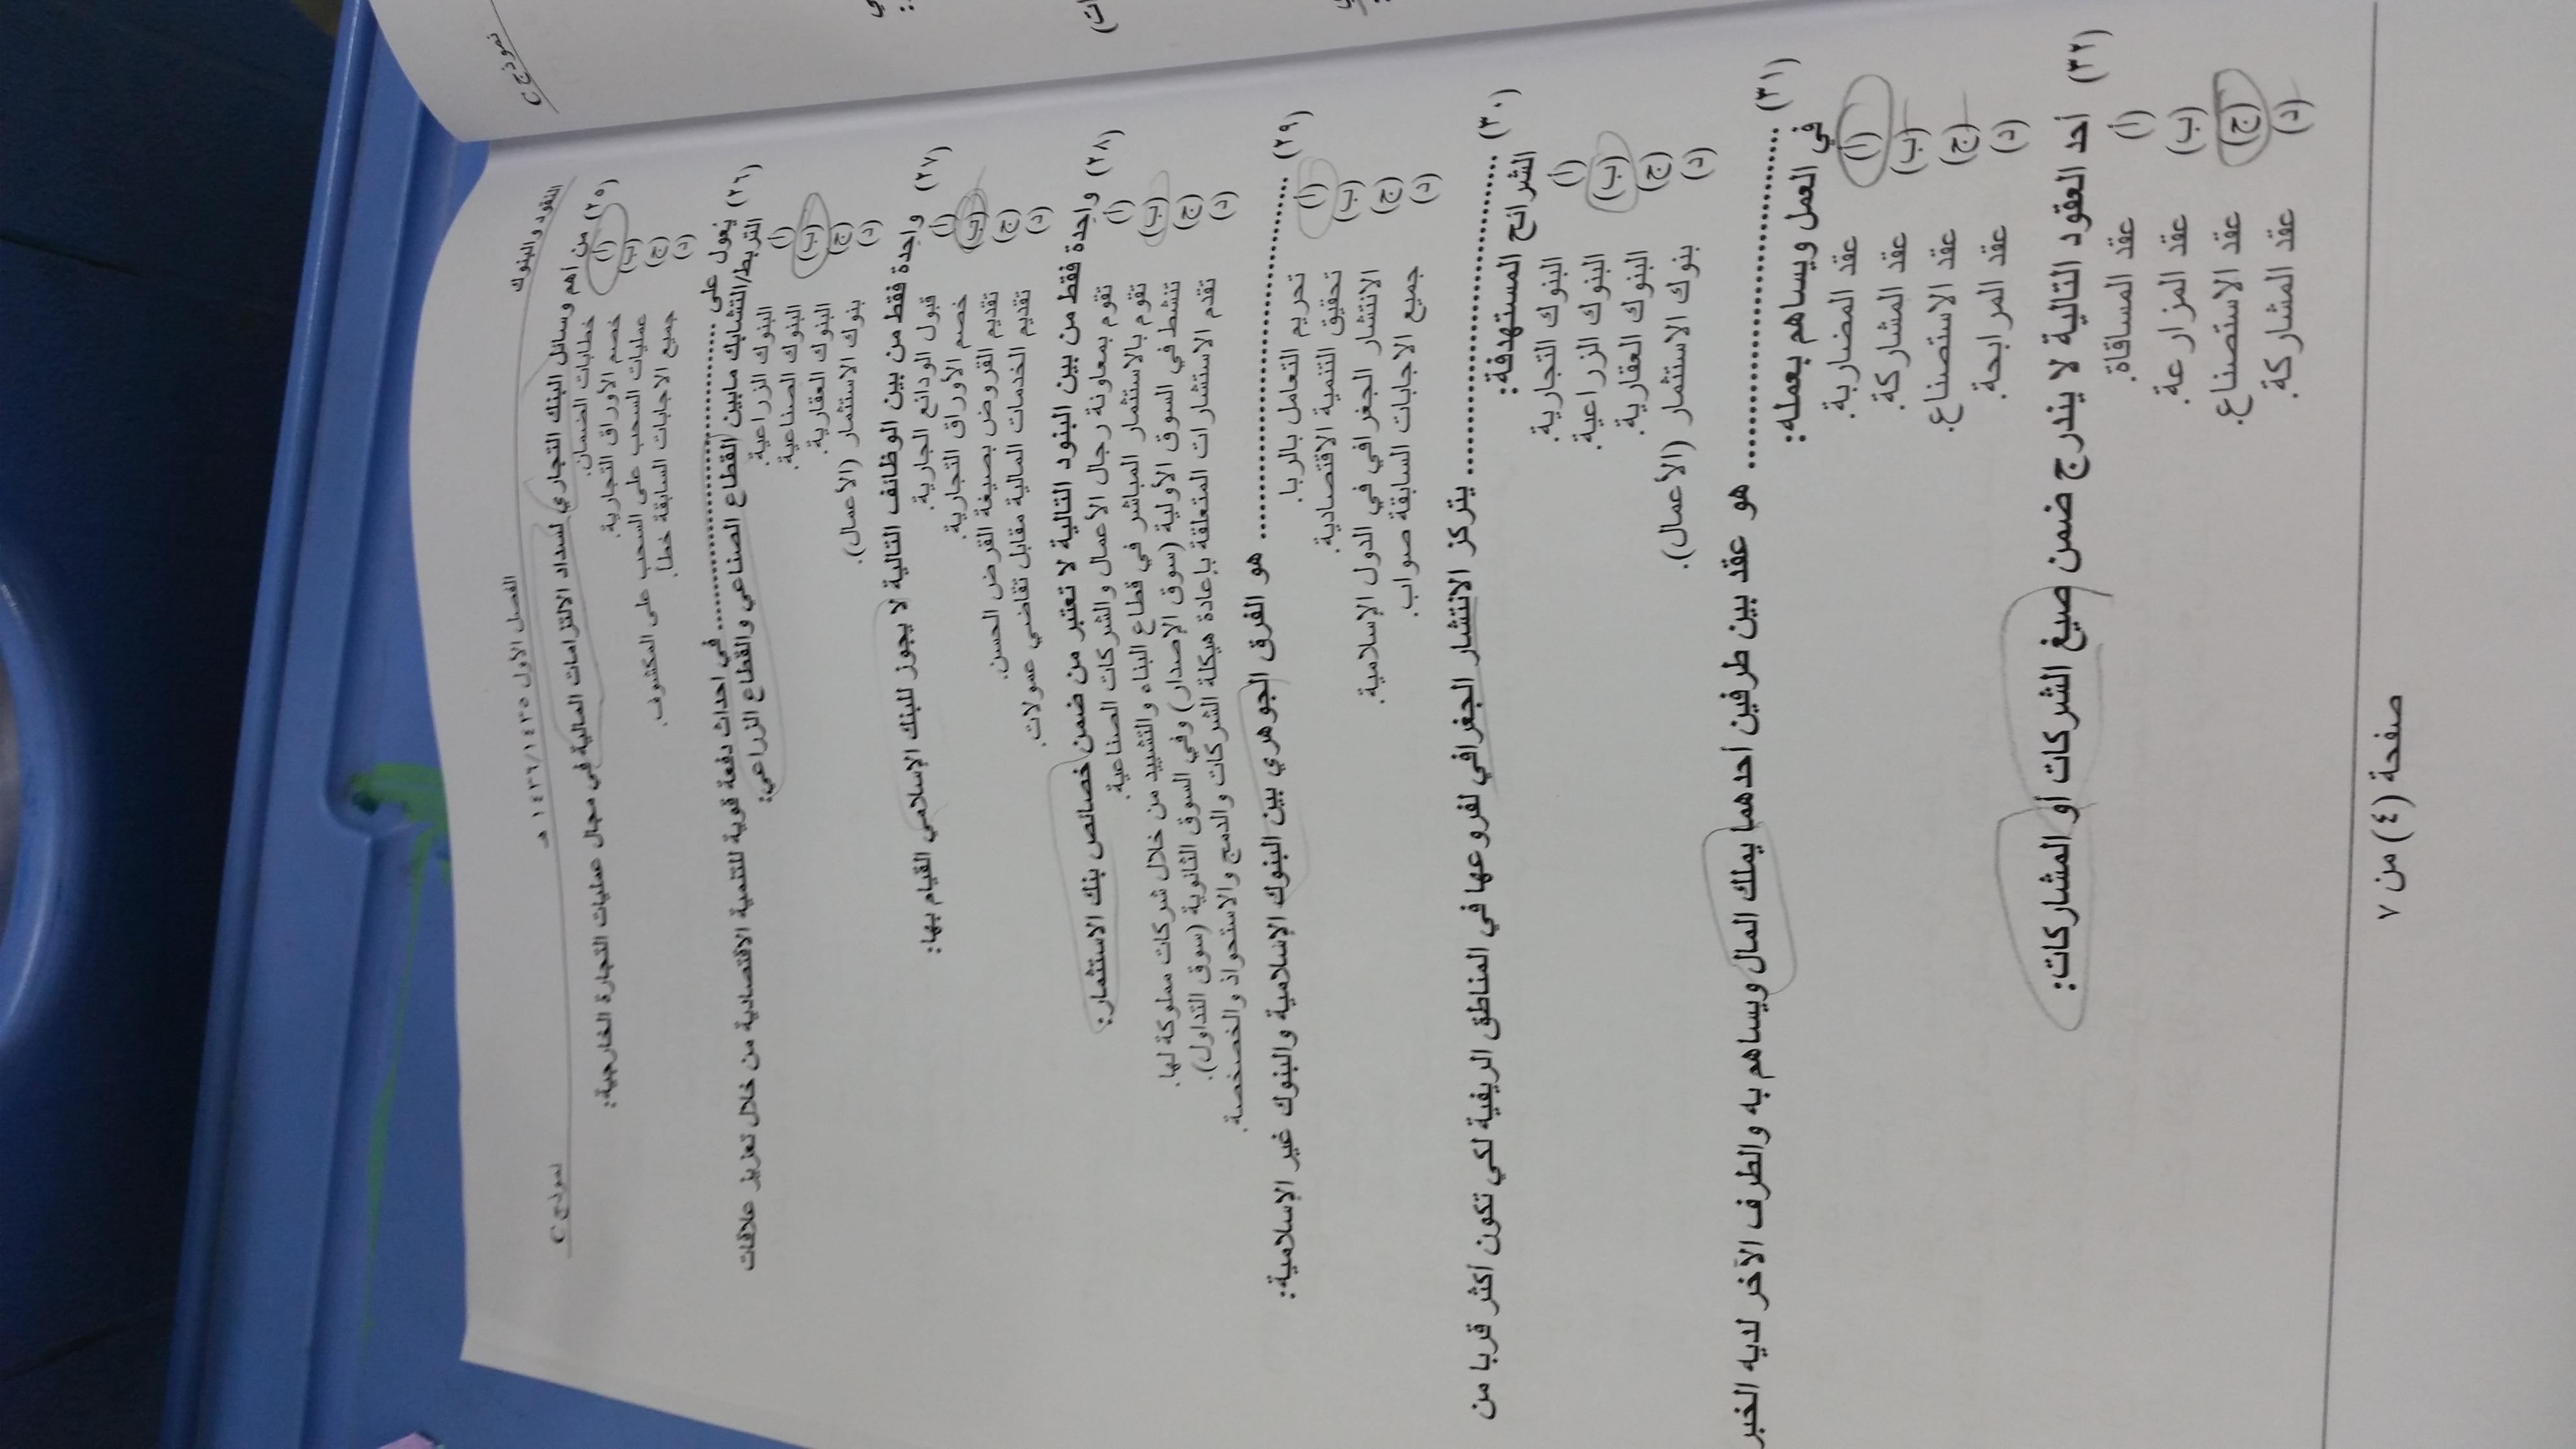 نموذج C
النقود والبنوك
الفصل الأول ١٤٣٥/١٤٣٦ هـ
نموذج C
(٢٥) من أهم وسائل البنك التجاري لسداد الالتزامات المالية في مجال عمليات التجارة الخارجية:
(أ) خطابات الضمان.
(ب) خصم الأوراق التجارية.
(ج) عمليات السحب على السحب على المكشوف.
(د) جميع الاجابات السابقة خطأ.
(٢٦) يعول على .................... في احداث دفعة قوية للتنمية الاقتصادية من خلال تعزيز علاقات
التربط/التشابك مابين القطاع الصناعي والقطاع الزراعي:
(أ) البنوك الزراعية.
(ب) البنوك الصناعية.
(ج) البنوك العقارية.
(د) بنوك الاستثمار (الأعمال).
(٢٧) واحدة فقط من بين الوظائف التالية لا يجوز للبنك الإسلامي القيام بها:
(أ) قبول الودائع الجارية.
(ب) خصم الأوراق التجارية.
(ج) تقديم القروض بصيغة القرض الحسن.
(د) تقديم الخدمات المالية مقابل تقاضي عمولات.
(٢٨) واحدة فقط من بين البنود التالية لا تعتبر من ضمن خصائص بنك الاستثمار:
(أ) تقوم بمعاونة رجال الأعمال والشركات الصناعية.
(ب) تقوم بالاستثمار المباشر في قطاع البناء والتشييد من خلال شركات مملوكة لها.
(ج) تنشط في السوق الأولية (سوق الإصدار) وفي السوق الثانوية (سوق التداول).
(د) تقدم الاستشارات المتعلقة بإعادة هيكلة الشركات والدمج والاستحواذ والخصخصة.
(٢٩) .................... هو الفرق الجوهري بين البنوك الإسلامية والبنوك غير الإسلامية:
(أ) تحريم التعامل بالربا.
(ب) تحقيق التنمية الاقتصادية.
(ج) الانتشار الجغرافي في الدول الإسلامية.
(د) جميع الاجابات السابقة صواب.
(٣٠) .................... يتركز الانتشار الجغرافي لفروعها في المناطق الريفية لكي تكون أكثر قربا من
الشرائح المستهدفة:
(أ) البنوك التجارية.
(ب) البنوك الزراعية.
(ج) البنوك العقارية.
(د) بنوك الاستثمار (الأعمال).
(٣١) .................... هو عقد بين طرفين أحدهما يملك المال ويساهم به والطرف الآخر لديه الخبر
في العمل ويساهم بعمله:
(أ) عقد المضاربة.
(ب) عقد المشاركة.
(ج) عقد الاستصناع.
(د) عقد المرابحة.
(٣٢) أحد العقود التالية لا يندرج ضمن صيغ الشركات أو المشاركات:
(أ) عقد المساقاة.
(ب) عقد المزارعة.
(ج) عقد الاستصناع.
(د) عقد المشاركة.
صفحة (٤) من ٧